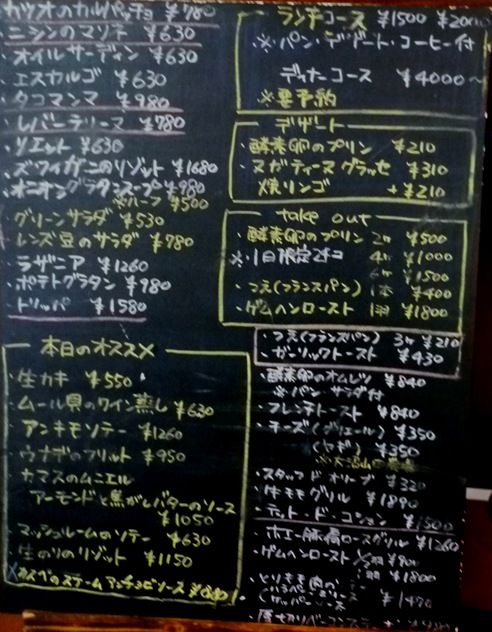 カツオのカルパッチョ ¥780
・ニシンのマリネ ¥630
・オイルサーディン ¥630
・エスカルゴ ¥630
・タコマンマ ¥980
・レバーテリーヌ ¥780
・リエット ¥630
・ズワイガニのリゾット ¥1680
・オニオングラタンスープ ¥980
※ハーフ ¥500
・グリーンサラダ ¥530
・レンズ豆のサラダ ¥780
・ラザニア ¥1260
・ポテトグラタン ¥980
・トリッパ ¥1580
本日のオススメ
・生カキ ¥550
・ムール貝のワイン蒸し ¥630
・アンキモソテー ¥1260
・ウナギのフリット ¥950
・カマスのムニエル
アーモンドと焦がしバターのソース
¥1050
・マッシュルームのソテー ¥630
・生のりのリゾット ¥1150
カスベのスチームアンチョビソース
ランチコース ¥1500 ¥2000
※パン・デザート・コーヒー付
ディナーコース ¥4000~
※要予約
デザート
・酵素卵のプリン ¥210
・ヌガティーヌグラッセ ¥310
焼リンゴ +¥210
take out
・酵素卵のプリン 2ケ ¥500
※1日限定24コ 4ケ ¥1000
6ケ ¥1500
・つえ(フランスパン) 1本 ¥400
・ゲムヘンロースト 1羽 ¥1800
・つえ(フランスパン) 3ケ ¥210
・ガーリックトースト ¥430
・酵素卵のオムレツ ¥840
※パン サラダ付
・フレンチトースト ¥840
・チーズ(グリエール) ¥350
(ヤギ) ¥350
・スタッフドオリーブ ¥320
・牛モモグリル ¥1890
・テット・ド・コション ¥1500
・ホエー豚肩ロースグリル ¥1260
・ゲムヘンロースト 1/2羽 ¥900
1羽 ¥1800
・とりモモ肉の
ソース ¥1470